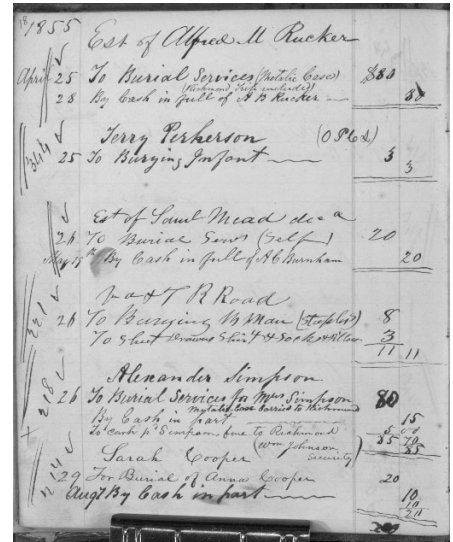 18/1855
Est of Alfred M Rucker
April 25 To Burial Services (Metalic Case) $80
(Richmond Trip included)
28 By Cash in full of A B Rucker 80
Terry Perkerson (O P Co)
344 25 To Burying Infant 3
3
Est of Saml Mead dec'd
26 To Burial Serv (Self) 20
May 19th By Cash in full of A C Burnham 20
Va & T R Road
221 26 To Burying N Man (Staples) 8
To Shirt Drawers Shirt & Socks & Pillow 3
11 11
Alexander Simpson
218 26 To Burial Services for Mrs Simpson 80
My talic Case Carried to Richmond
By Cash in part 15
To cash pd Simpson fare to Richmond 5
85 70
85
Sarah Cooper (Wm Johnson Security)
214 29 For Burial of Anna Cooper 20
Augt By Cash in part 10
10
20